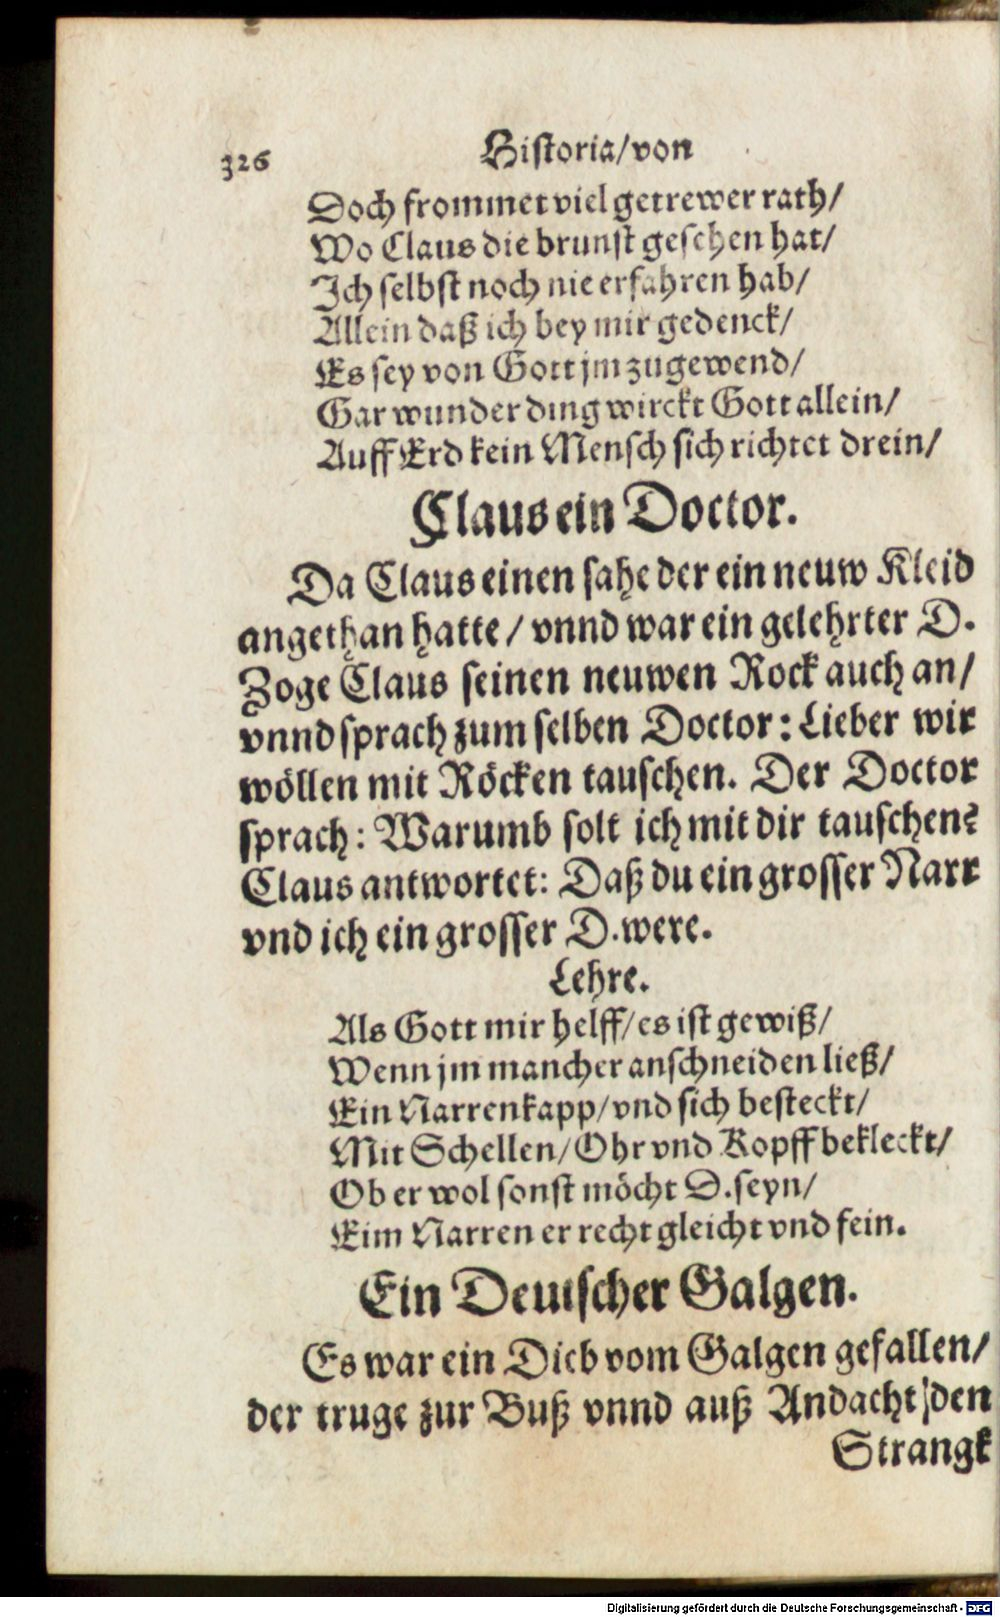 326 Historia/von
Doch frommet viel getrewer rath/
Wo Claus die brunst gesehen hat/
Ich selbst noch nie erfahren hab/
Allein daß ich bey mir gedenck/
Es sey von Gott jm zugewend/
Gar wunder ding wirckt Gott allein/
Auff Erd kein Mensch sich richtet drein/
Claus ein Doctor.
Da Claus einen sahe der ein neuw Kleid
angethan hatte / vnnd war ein gelehrter D.
Zoge Claus seinen neuwen Rock auch an/
vnnd sprach zum selben Doctor: Lieber wir
wöllen mit Röcken tauschen. Der Doctor
sprach: Warumb solt ich mit dir tauschen?
Claus antwortet: Daß du ein grosser Narr
vnd ich ein grosser D. were.
Lehre.
Als Gott mir helff/es ist gewiß/
Wenn jm mancher anschneiden ließ/
Ein Narrenkapp/vnd sich besteckt/
Mit Schellen/Ohr vnd Kopff bekleckt/
Ob er wol sonst möcht D. seyn/
Eim Narren er recht gleicht vnd fein.
Ein Deutscher Galgen.
Es war ein Dieb vom Galgen gefallen/
der truge zur Buß vnnd auß Andacht/den
Strangk
Digitalisierung gefördert durch die Deutsche Forschungsgemeinschaft - DFG